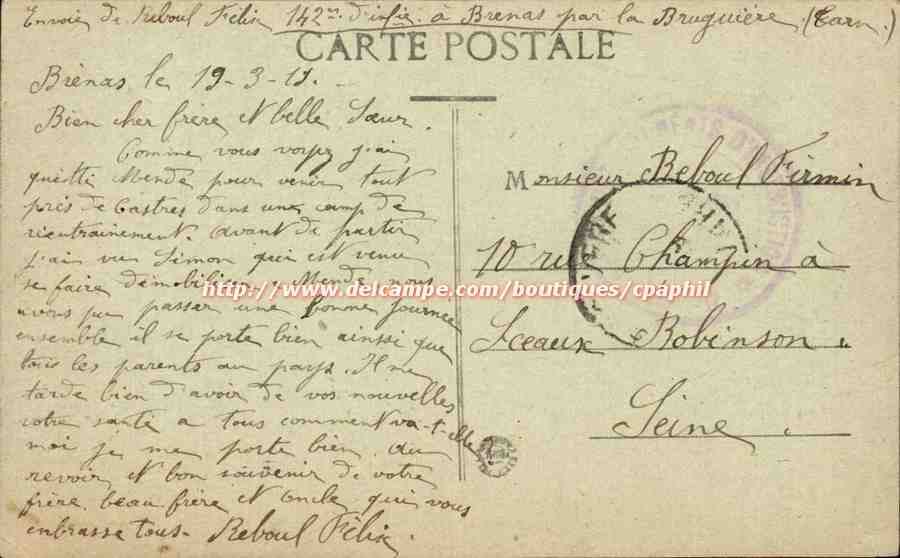 Envoie de Reboul Félix 142me d'infie. à Brenas par la Bruguière (Tarn.)
CARTE POSTALE
Brénas le 19-3-19.
Bien cher frère et belle Sœur.
Comme vous voyez j'ai
quitté Mende pour venir tout
près de Castres dans un camp de
réentrainement. avant de partir
j'ai vu Simon qui est venu
se faire démobiliser à Mende nous
avons pu passer une bonne journée
ensemble il se porte bien ainsi que
tous les parents au pays. Il me
tarde bien d'avoir de vos nouvelles
votre santé a tous comment va-t-elle
moi je me porte bien. au
revoir et bon souvenir de votre
frère, beau frère et oncle qui vous
enbrasse tous. Reboul Félix.
Monsieur Reboul Firmin
10 rue Champin à
Sceaux Robinson.
Seine.
http://www.delcampe.com/boutiques/cpaphil